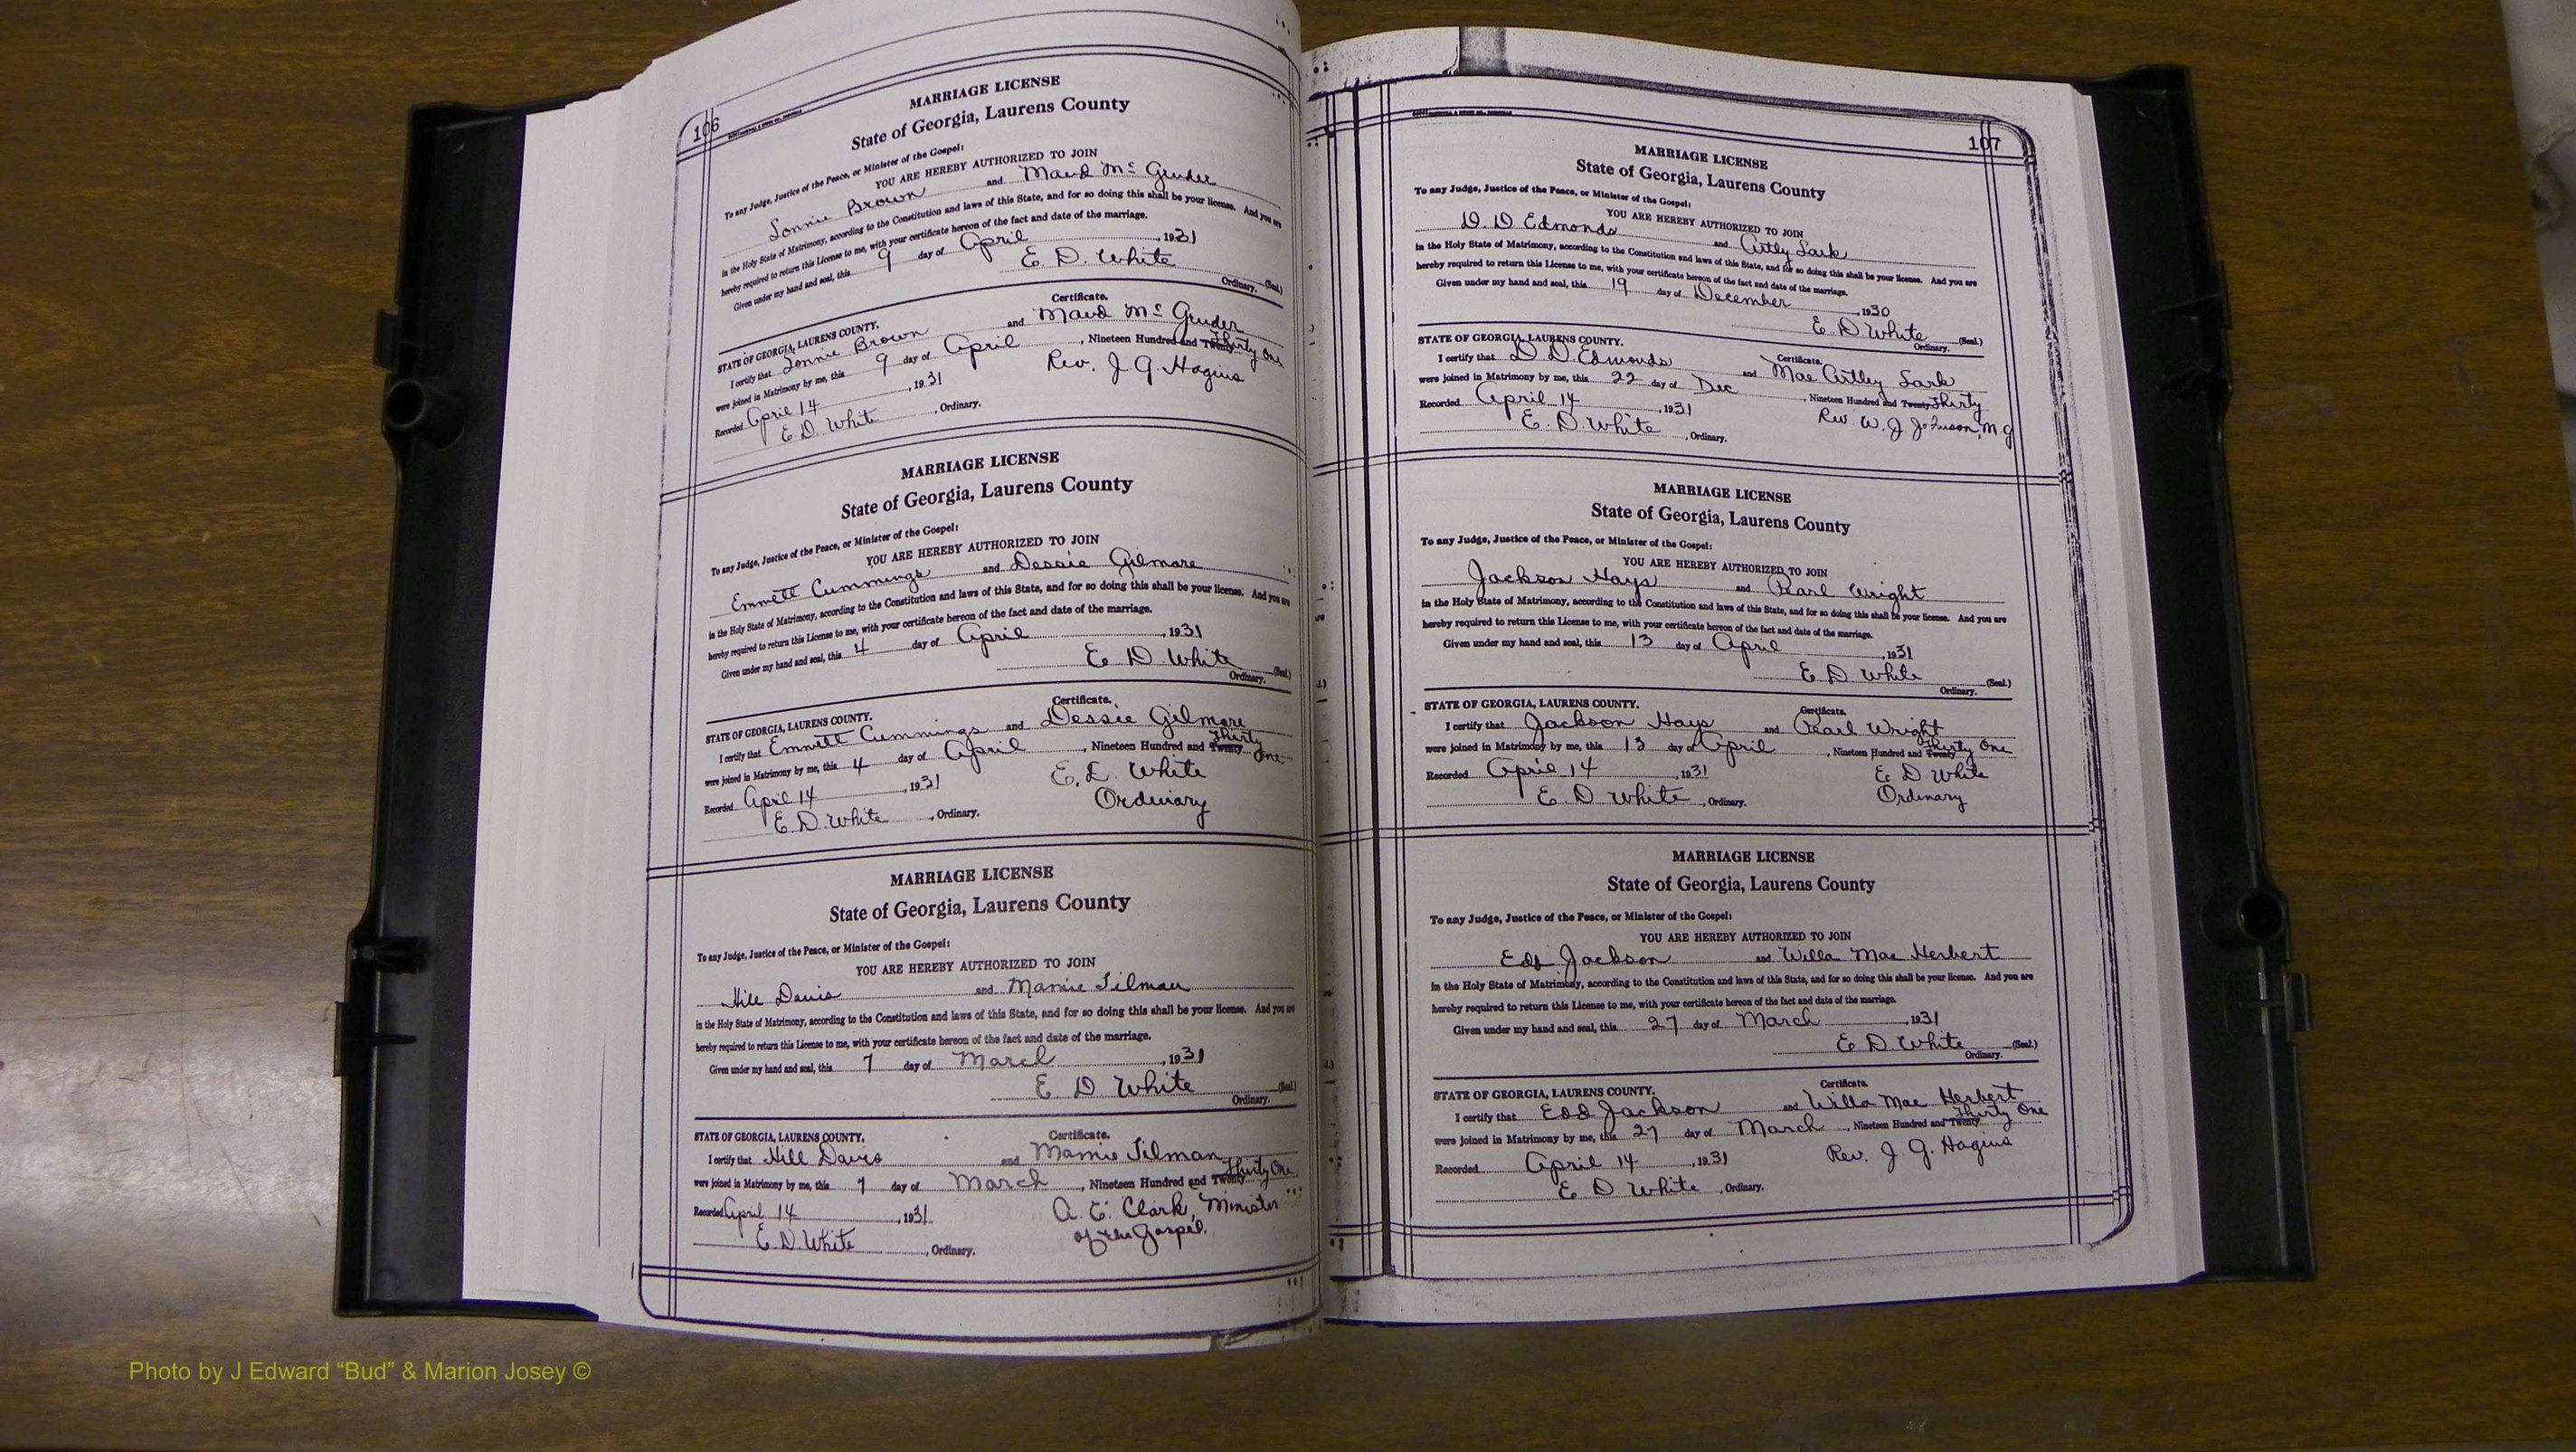 106
MARRIAGE LICENSE
State of Georgia, Laurens County
To any Judge, Justice of the Peace, or Minister of the Gospel:
YOU ARE HEREBY AUTHORIZED TO JOIN
Lonnie Brown and Maud Mc Gruder
in the Holy State of Matrimony, according to the Constitution and laws of this State, and for so doing this shall be your license. And you are
hereby required to return this License to me, with your certificate hereon of the fact and date of the marriage.
Given under my hand and seal, this 9 day of April, 1931
E. D. White (Seal.)
Ordinary.
Certificate.
STATE OF GEORGIA, LAURENS COUNTY.
I certify that Lonnie Brown and Maud Mc Gruder
were joined in Matrimony by me, this 9 day of April, Nineteen Hundred and Twenty Thirty One
Recorded April 14, 1931 Rev. J. G. Hagins
E. D. White, Ordinary.
MARRIAGE LICENSE
State of Georgia, Laurens County
To any Judge, Justice of the Peace, or Minister of the Gospel:
YOU ARE HEREBY AUTHORIZED TO JOIN
Emmett Cummings and Dessie Gilmore
in the Holy State of Matrimony, according to the Constitution and laws of this State, and for so doing this shall be your license. And you are
hereby required to return this License to me, with your certificate hereon of the fact and date of the marriage.
Given under my hand and seal, this 4 day of April, 1931
E. D. White (Seal.)
Ordinary.
Certificate.
STATE OF GEORGIA, LAURENS COUNTY.
I certify that Emmett Cummings and Dessie Gilmore
were joined in Matrimony by me, this 4 day of April, Nineteen Hundred and Twenty Thirty One
Recorded April 14, 1931 E. D. White
E. D. White, Ordinary. Ordinary
MARRIAGE LICENSE
State of Georgia, Laurens County
To any Judge, Justice of the Peace, or Minister of the Gospel:
YOU ARE HEREBY AUTHORIZED TO JOIN
Hill Davis and Mamie Tilman
in the Holy State of Matrimony, according to the Constitution and laws of this State, and for so doing this shall be your license. And you are
hereby required to return this License to me, with your certificate hereon of the fact and date of the marriage.
Given under my hand and seal, this 7 day of March, 1931
E D White (Seal.)
Ordinary.
Certificate.
STATE OF GEORGIA, LAURENS COUNTY.
I certify that Hill Davis and Mamie Tilman
were joined in Matrimony by me, this 7 day of March, Nineteen Hundred and Twenty Thirty One
Recorded April 14, 1931 A. E. Clark, Minister
E. D. White, Ordinary. of the Gospel.
107
MARRIAGE LICENSE
State of Georgia, Laurens County
To any Judge, Justice of the Peace, or Minister of the Gospel:
YOU ARE HEREBY AUTHORIZED TO JOIN
D. D Edmonds and Artly Lark
in the Holy State of Matrimony, according to the Constitution and laws of this State, and for so doing this shall be your license. And you are
hereby required to return this License to me, with your certificate hereon of the fact and date of the marriage.
Given under my hand and seal, this 19 day of December, 1930
E. D White (Seal.)
Ordinary.
STATE OF GEORGIA, LAURENS COUNTY.
Certificate.
I certify that D. D. Edmonds and Mae Artley Lark
were joined in Matrimony by me, this 22 day of Dec, Nineteen Hundred and Twenty Thirty
Recorded April 14, 1931 Rev. W. J. Johnson, M. G
E. D. White, Ordinary.
MARRIAGE LICENSE
State of Georgia, Laurens County
To any Judge, Justice of the Peace, or Minister of the Gospel:
YOU ARE HEREBY AUTHORIZED TO JOIN
Jackson Hays and Pearl Wright
in the Holy State of Matrimony, according to the Constitution and laws of this State, and for so doing this shall be your license. And you are
hereby required to return this License to me, with your certificate hereon of the fact and date of the marriage.
Given under my hand and seal, this 13 day of April, 1931
E. D. White (Seal.)
Ordinary.
STATE OF GEORGIA, LAURENS COUNTY.
Certificate.
I certify that Jackson Hays and Pearl Wright
were joined in Matrimony by me, this 13 day of April, Nineteen Hundred and Twenty Thirty One
Recorded April 14, 1931 E. D. White
E. D White, Ordinary. Ordinary
MARRIAGE LICENSE
State of Georgia, Laurens County
To any Judge, Justice of the Peace, or Minister of the Gospel:
YOU ARE HEREBY AUTHORIZED TO JOIN
Edd Jackson and Willa Mae Herbert
in the Holy State of Matrimony, according to the Constitution and laws of this State, and for so doing this shall be your license. And you are
hereby required to return this License to me, with your certificate hereon of the fact and date of the marriage.
Given under my hand and seal, this 27 day of March, 1931
E D. White (Seal.)
Ordinary.
Certificate.
STATE OF GEORGIA, LAURENS COUNTY.
I certify that Edd Jackson and Willa Mae Herbert
were joined in Matrimony by me, this 27 day of March, Nineteen Hundred and Twenty Thirty One
Recorded April 14, 1931 Rev. J. G. Hagins
E. D White, Ordinary.
Photo by J Edward “Bud” & Marion Josey ©